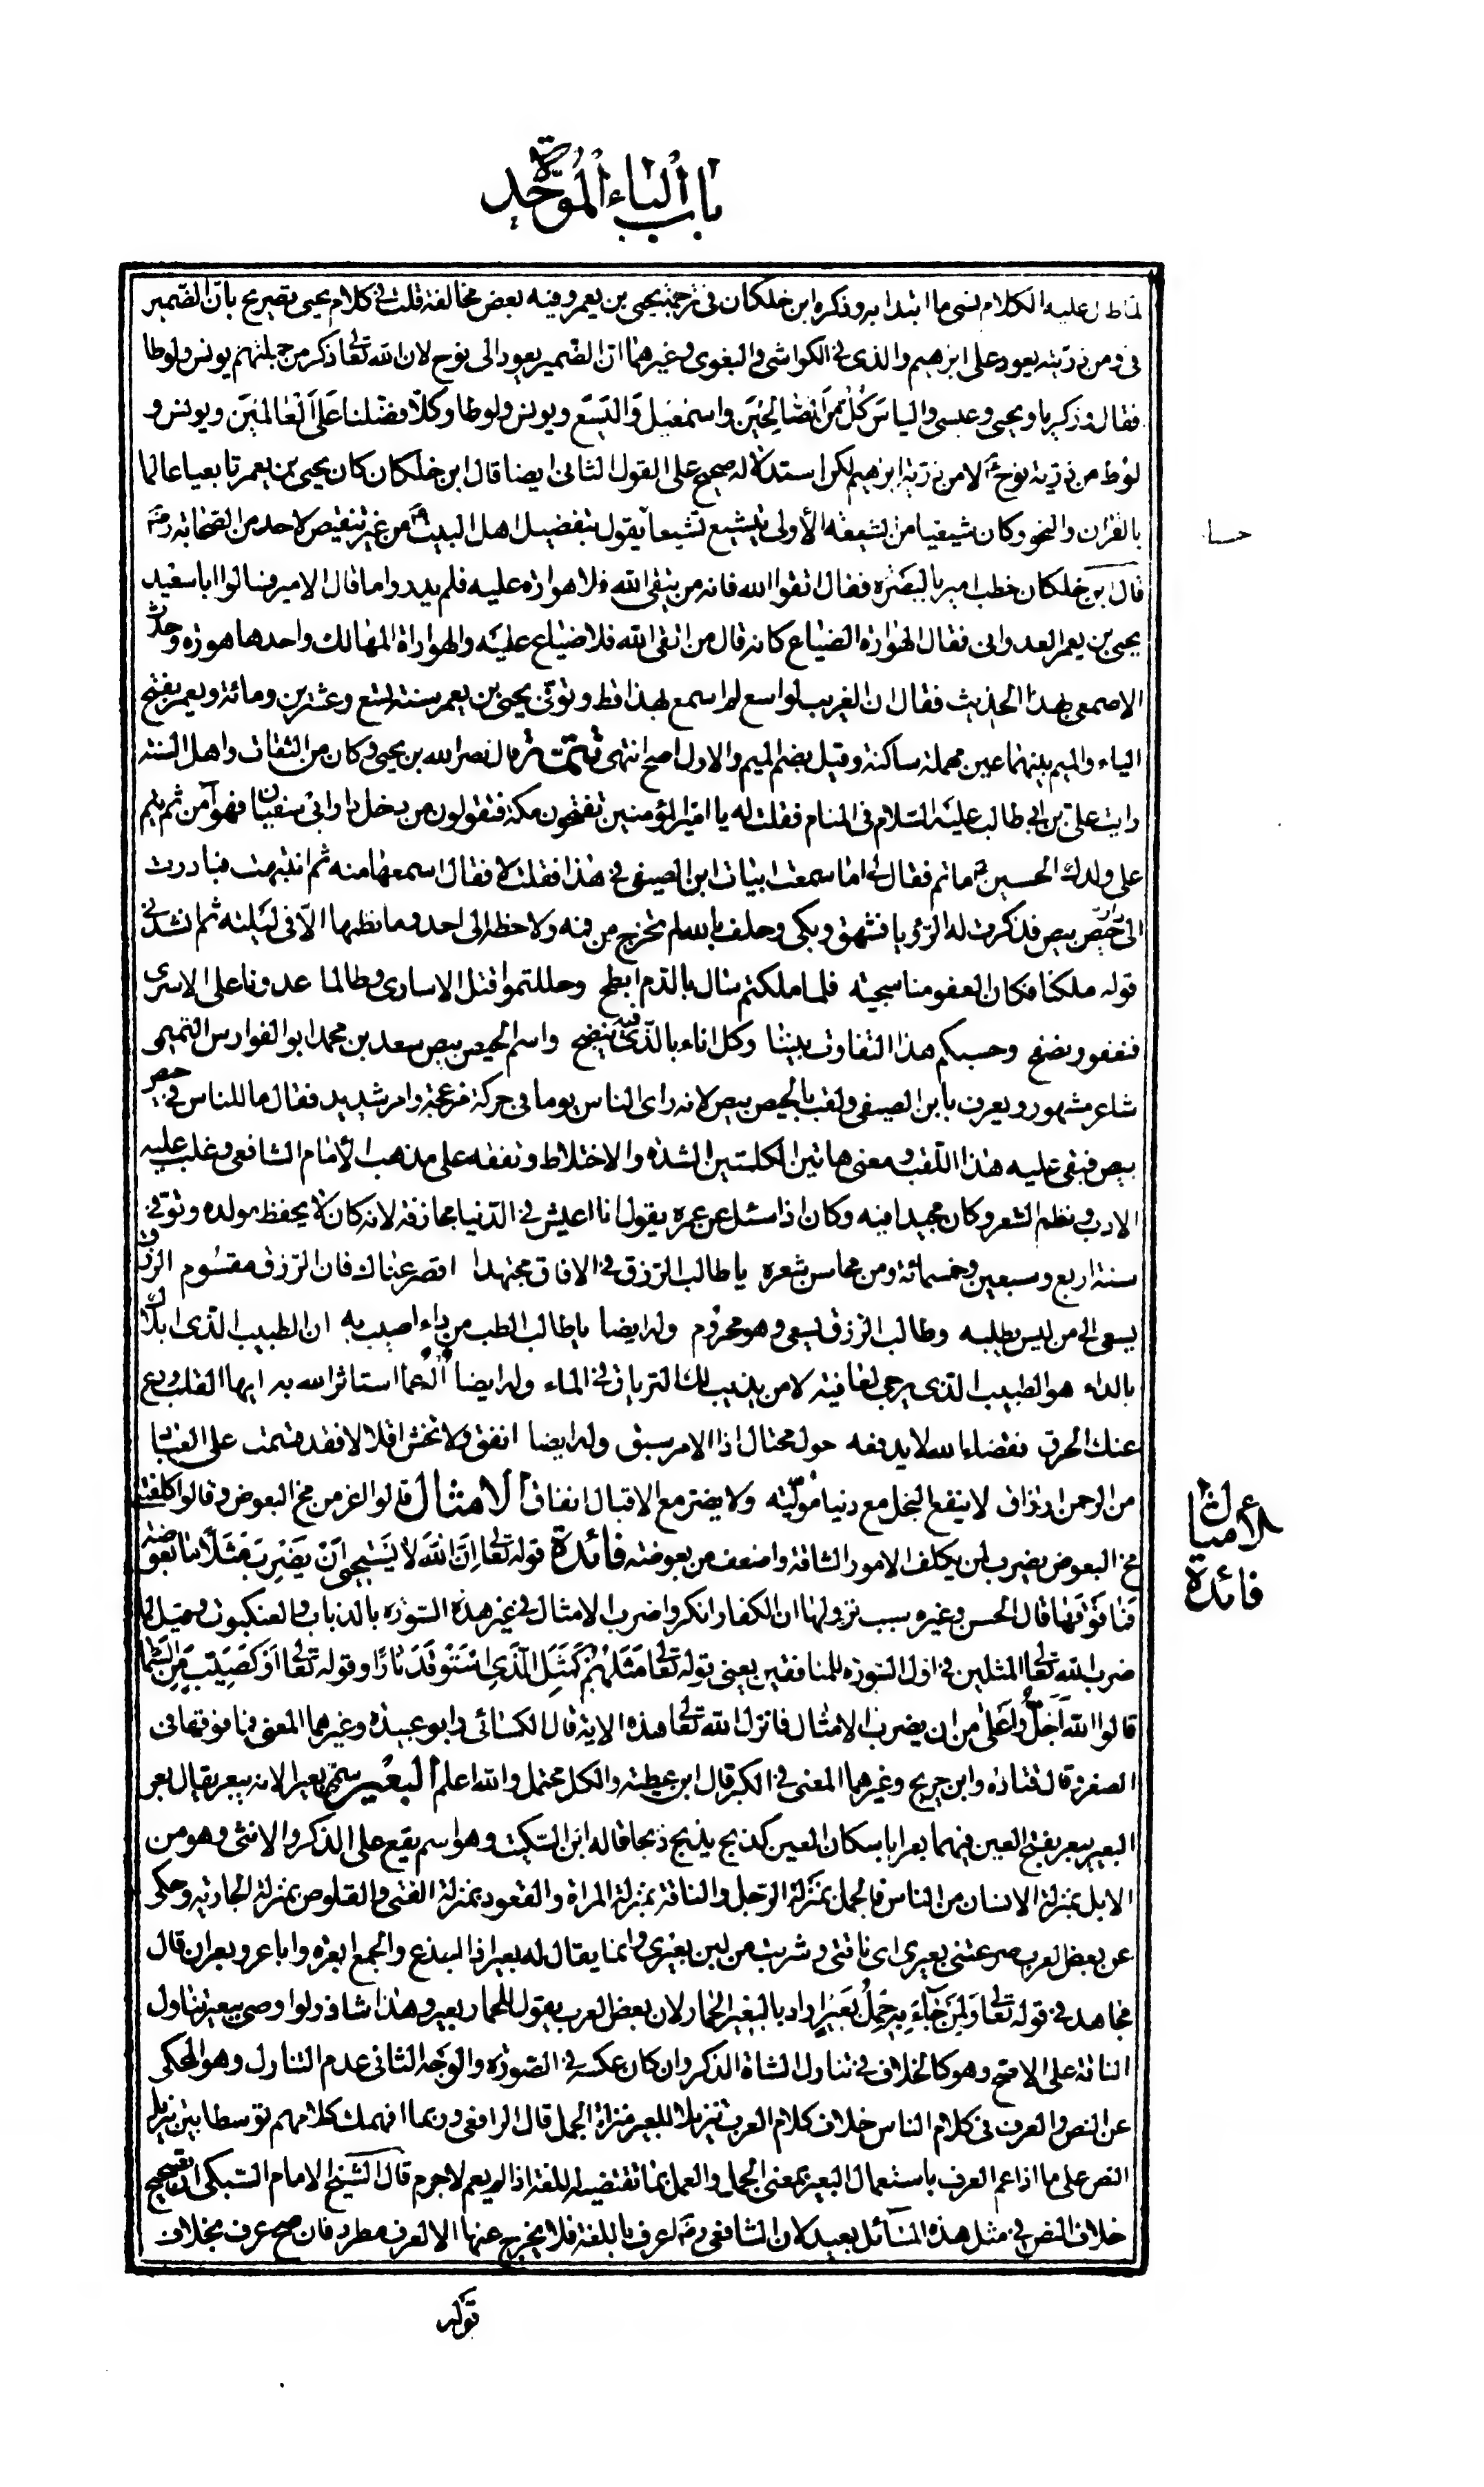 باب الباء الموحدة
لما طال عليه الكلام نسى ما ابتدا به وذكره ابن خلكان فى ترجمة يحيى بن يعمر وفيه بعض مخالفة قلت فى كلام يحيى تصريح بان الضمير
فى ومن ذريته يعود على ابرهيم والذى فى الكواشى والبغوى وغيرهما ان الضمير يعود الى نوح لان الله تعالى ذكر من جملتهم يونس ولوطا
فقال وزكريا ويحيى وعيسى والياس كُلٌّ مِنَ الصّٰالِحينَ واسمعيل وَالْيَسَعَ ويونس ولوطا وكلّا فضّلنا عَلَى الْعٰالَمينَ ويونس و
لوط من ذرية نوح لا من ذرية ابرهيم لكن استدلاله صحيح على القول الثانى ايضا قال ابن خلكان كان يحيى بن يعمر تابعيا عالما
بالقران والنحو وكان شيعيا من الشيعة الأولى يتشيع تشيعا يقول بتفضيل اهل البيت من غير تنقيص لاحد من الصحابة رض
قال ابن خلكان خطب امير بالبصرة فقال اتقوا الله فانه من يتقى الله فلا هوارة عليه فلم يدروا ما قال الامير فسالوا اباسعيد
يحيى بن يعمر العدوانى فقال الهوارة الضياع كانه قال من اتقى الله فلا ضياع عليه والهوارة المهالك واحدها هورة وحدث
الاصمعى بهذا الحديث فقال ان الغريب لواسع لم اسمع بهذا قط وتوفى يحيى بن يعمر سنة تسع وعشرين ومائة ويعمر بفتح
الياء والميم بينهما عين مهملة ساكنة وقيل بضم الميم والاول اصح انتهى تتمة قال نصر الله بن يحيى وكان من الثقات واهل السنة
رايت على بن ابى طالب عليه السلام فى المنام فقلت له يا امير المؤمنين تفتحون مكة فتقولون من دخل دار ابى سفيان فهو آمن ثم يتم
على ولدك الحسين ما تم فقال لى اما سمعت ابيات ابن الصيفى فى هذا فقلت لا فقال اسمعها منه ثم انتبهت فبادرت
الى دار حيص بيص فذكرت له الرؤيا فشهق وبكى وحلف بالله لم تخرج من فمه ولا خطه الى احد وما نظمها الا فى ليلته ثم انشدنى
قوله ملكنا فكان العفو منا سجية فلما ملكتم سال بالدم ابطح وحللتموا قتل الاسارى وطالما عدونا على الاسرى
فنعفو ونصفح وحسبكم هذا التفاوت بيننا وكل اناء بالذى فيه ينضح واسم الحيص بيص سعد بن محمد ابو الفوارس التميمى
شاعر مشهور ويعرف بابن الصيفى ولقب بالحيص بيص لانه راى الناس يوما فى حركة مزعجة وامر شديد فقال ما للناس فى حيص
بيص فبقى عليه هذا اللقب ومعنى هاتين الكلمتين الشدة والاختلاط وتفقه على مذهب الأمام الشافعى وغلب عليه
الادب ونظم الشعر وكان مجيدا فيه وكان اذا سئل عن عمره يقول انا اعيش فى الدنيا مجازفة لانه كان لا يحفظ مولده وتوفى
سنة اربع وسبعين وخمسمائة ومن محاسن شعره يا طالب الرزق فى الافاق مجتهدا اقصر عناك فان الرزق مقسوم الرزق
يسعى الى من ليس يطلبه وطالب الرزق يسعى وهو محروم وله ايضا يا طالب الطب من داء اصيب به ان الطبيب الذى ابلاك
بالداء هو الطبيب الذى يرجى لعافية لا من يذيب لك الترياق فى الماء وله ايضا اله عما استاثر الله به ايها القلب ودع
عنك الحرق فقضاء الله لا يدفعه حول محتال اذا الامر سبق وله ايضا انفق ولا تخش اقلالا فقد قسمت على العباد
من الرحمن ارزاق لا ينفع البخل مع دنيا مولية ولا يضر مع الاقبال انفاق الامثال قالوا اعز من مخ البعوض وقالوا كلفتنى
مخ البعوض يضرب لمن يكلف الامور الشاقة واضعف من بعوضة فائدة قوله تعالى اِنَّ اللّهَ لا يَسْتَحيى اَنْ يَضْرِبَ مَثَلاً ما بعوضة
فَما فَوْقَها قال الحسن وغيره سبب نزولها ان الكفار انكروا ضرب الامثال فى غير هذه السورة بالذباب والعنكبوت وقيل لما
ضرب الله تعالى المثلين فى اول السورة للمنافقين يعنى قوله تعالى مَثَلُهُمْ كَمَثَلِ الَّذِى اسْتَوْقَدَ نارًا وقوله تعالى اَوْ كَصَيِّبٍ مِنَ السَّماء
قالوا الله اَجَلُّ واَعلى من ان يضرب الامثال فانزل الله تعالى هذه الاية قال الكسائى وابو عبيدة وغيرهما المعنى فما فوقها فى
الصغر وقال قتادة وابن جريج وغيرهما المعنى فى الكبر قال ابن عطية والكل محتمل والله اعلم البعير سمى بعيرا لانه يبعر يقال بعر
البعير يبعر بفتح العين فيهما بعرا باسكان العين كذبح يذبح ذبحا قاله ابن السكيت وهو اسم يقع على الذكر والانثى وهو من
الابل بمنزلة الانسان من الناس فالجمل بمنزلة الرجل والناقة بمنزلة المراة والقعود بمنزلة الفتى والقلوص بمنزلة الجارية وحكى
عن بعض العرب صرعتنى بعيرى اى ناقتى وشربت من لبن بعيرى وانما يقال له بعير اذا اجذع والجمع ابعرة واباعر وبعران قال
مجاهد فى قوله تعالى وَلِمَنْ جٰاءَ بِهِ حِمْلُ بَعيرٍ اراد بالبعير الحمار لان بعض العرب يقول للحمار بعير وهذا شاذ ولو اوصى ببعير تناول
الناقة على الاصح وهو كالخلاف فى تناول الشاة الذكر وان كان عكسه فى الصورة والوجه الثانى عدم التناول وهو المحكى
عن النص والعرف فى كلام الناس خلاف كلام العرب تنزيلا للبعير منزلة الجمل قال الرافعى وربما افهمك كلامهم توسطا بين تنزيل
النص على ما اذا عم العرف باستعمال البعير بمعنى الجمل والعمل بما تقتضيه اللغة اذا لم يعم لا جرم قال الشيخ الامام السبكى ان تصحيح
خلاف النص فى مثل هذه المسائل بعيد لان الشافعى رض اعرف باللغة فلا يخرج عنها الا لعرف مطرد فان صح عرف بخلاف
الامثال
فائدة
قوله